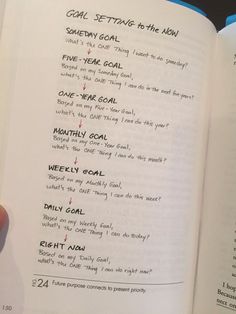 GOAL SETTING to the NOW
SOMEDAY GOAL
What's the ONE Thing I want to do someday?
FIVE-YEAR GOAL
Based on my Someday Goal,
what's the ONE Thing I can do in the next five years?
ONE-YEAR GOAL
Based on my Five-Year Goal,
what's the ONE Thing I can do this year?
MONTHLY GOAL
Based on my One-Year Goal,
what's the ONE Thing I can do this month?
WEEKLY GOAL
Based on my Monthly Goal,
what's the ONE Thing I can do this week?
DAILY GOAL
Based on my Weekly Goal,
what's the ONE Thing I can do today?
RIGHT NOW
Based on my Daily Goal,
what's the ONE Thing I can do right now?
24 Future purpose connects to present priority.
150
I hop
Because